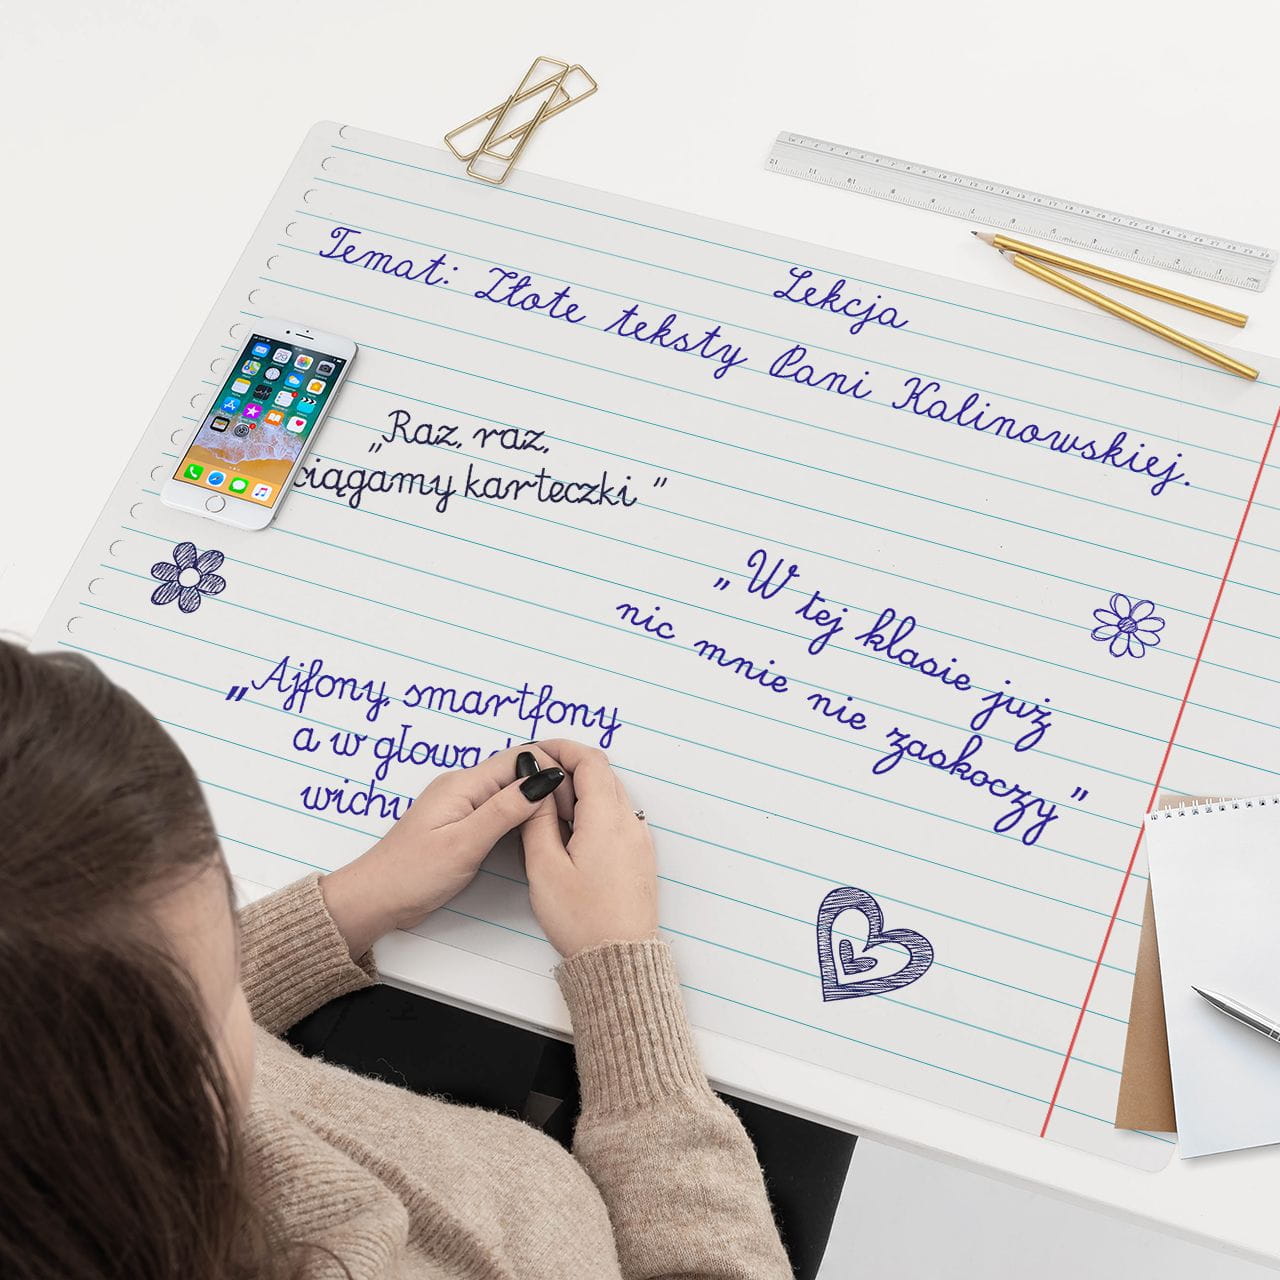 Lekcja
Temat: Złote teksty Pani Kalinowskiej.
„Raz, raz,
karteczki”
„W tej klasie już
nic mnie nie zaskoczy”
„Ajfony, smartfony
a w